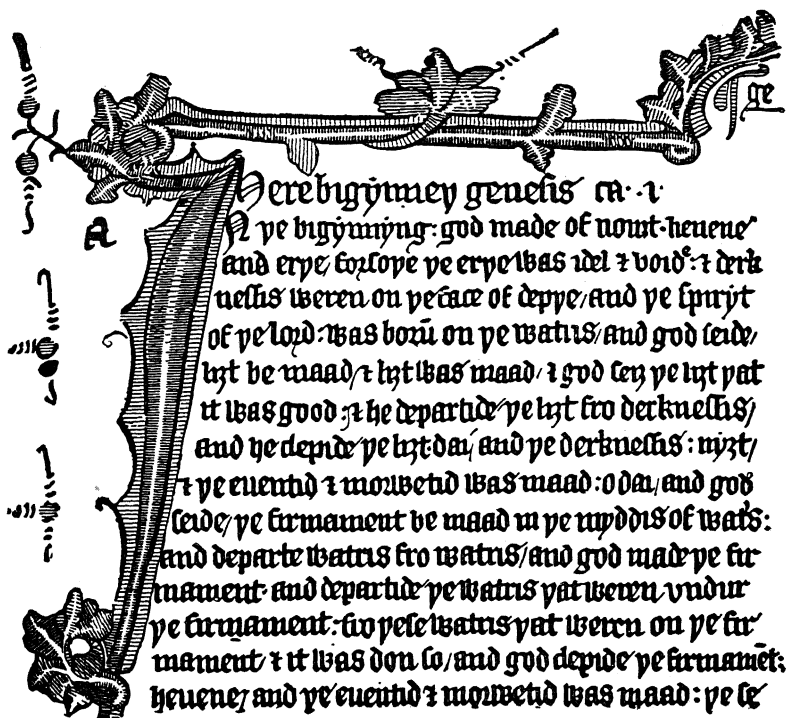 ge
Here bigẏnneþ genesis ca. .i.
A
N þe bigẏnnẏng: god made of nouȝt heuene
and erþe/ forsoþe þe erþe was idel ⁊ voide: ⁊ derk
nessis weren on þe face of depþe/ and þe spirẏt
of þe lord: was borū on þe watris/ and god seide/
liȝt be maad/ ⁊ liȝt was maad/ ⁊ god seȝ þe liȝt þat
it was good: ⁊ he departide þe liȝt fro derknessis/
and he clepide þe liȝt dai/ and þe derknessis: nyȝt/
⁊ þe euentid ⁊ morwetid was maad: o dai/ and god
seide/ þe firmament be maad in þe myddis of wat's:
and departe watris fro watris/ and god made þe fir
mament and departide þe watris þat weren vndur
þe firmament: fro þese watris þat weren on þe fir
mament ⁊ it was don so/ and god clepide þe firmamēt:
heuene/ and þe euentid ⁊ morwetid was maad: þe se